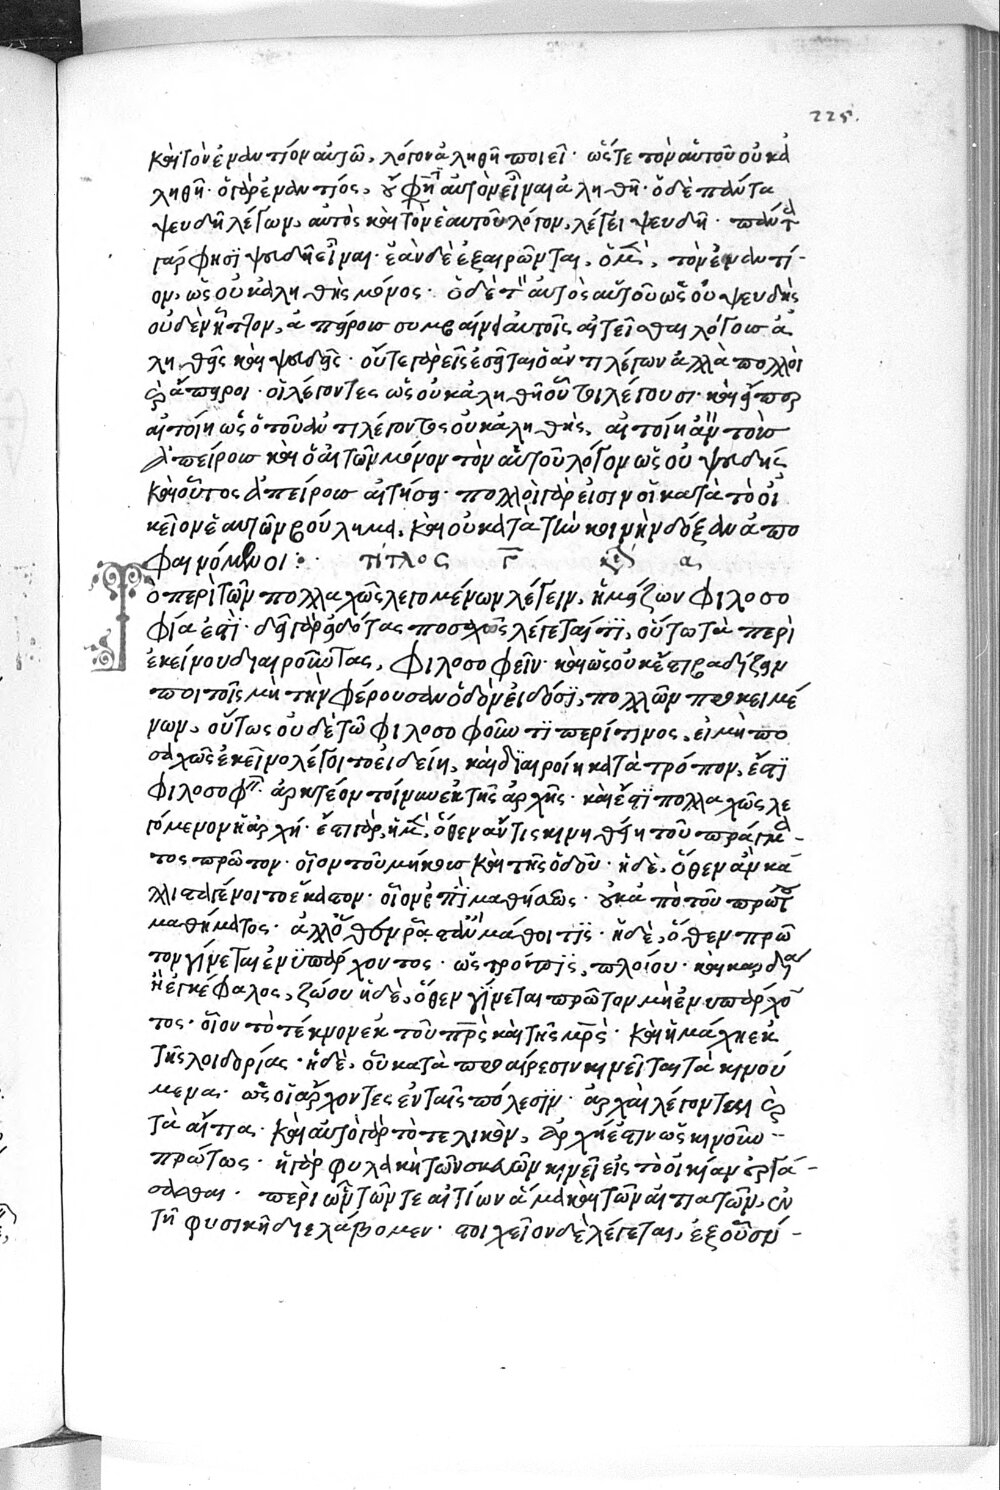 225.
καὶ τὸν ἐναντίον αὐτῶ, λόγον ἀληθῆ ποιεῖ· ὥστε τὸν αὑτοῦ οὐκ ἀ
ληθῆ· ὁ γὰρ ἐναντίος, οὔ φη αὐτὸν εἶναι ἀληθῆ· ὁ δὲ πάντα
ψευδῆ λέγων, αὐτὸς καὶ τὸν ἑαυτοῦ λόγον, λέγει ψευδῆ· πάντα
γάρ φησϊ ψευδῆ εἶναι· ἐὰν δὲ ἐξαιρῶνται, ὁ μὲν, τὸν ἐναντί-
ον, ὡς οὐκ ἀληθὴς μόνος· ὁ δὲ τὸν αὐτὸς αὑτοῦ ὡς οὐ ψευδὴς
οὐδὲν ἧττον, ἀπείρους συμβαίνει αὐτοῖς αἰτεῖσθαι λόγους ἀ
ληθεῖς καὶ ψευδεῖς· οὔτε γὰρ εἷς ἔσται ὁ ἀντιλέγων ἀλλὰ πολλοὶ
καὶ ἄπειροι· οἱ λέγοντες ὡς οὐκ ἀληθῆ οὗτοι λέγουσι· καὶ εἴπερ
αἰτοίη ὡς ὁ τοῦ ἀντιλέγοντος οὐκ ἀληθής, αἰτοίη ἂν τοὺς
ἀπείρους καὶ ὁ αἰτῶν μόνον τὸν αὑτοῦ λόγον ὡς οὐ ψευδής
καὶ οὗτος ἀπείρους αἰτήσει· πολλοὶ γὰρ εἰσιν οἱ κατὰ τὸ οἰ
κεῖον ἑαυτῶν βούλημα, καὶ οὐ κατὰ τὴν κοινὴν δόξαν ἀπο
φαινόμενοι: τίτλος γ κεφ α
Τὸ περὶ τῶν πολλαχῶς λεγομένων λέγειν, ἡ μείζων φιλοσο
φία ἐστὶ· δεῖ γὰρ εἰδότας ποσαχῶς λέγεταί τι, οὕτω τὰ περὶ
ἐκείνου διαιροῦντας, φιλοσοφεῖν· καὶ ὡς οὐκ ἔστι βαδίζειν
ποι τοῖς μὴ τὴν φέρουσαν ὁδὸν εἰδόσϊ, πολλῶν προκειμέ
νων, οὕτως οὐδέ τω φιλοσοφοῦντι περί τινος, εἰ μὴ πο
σαχῶς ἐκεῖνο λέγοιτο εἰδείη, καὶ διαιροίη κατὰ τρόπον, ἔστϊ
φιλοσοφεῖν· ἀρκτέον τοίνυν ἐκ τῆς ἀρχῆς· καὶ ἔστϊ πολλαχῶς λε
γόμενον ἡ ἀρχή· ἔστι γὰρ, ἡ μὲν, ὅθεν ἄν τις κινηθείη τοῦ πράγμα-
τος πρῶτον· οἷον τοῦ μήκους καὶ τῆς ὁδοῦ· ἡ δὲ, ὅθεν ἂν κά
λλιστα γένοιτο ἕκαστον· οἷον ἐπὶ μαθήσεως· οὐκ ἀπὸ τοῦ πρώτου
μαθήματος· ἀλλ' ὅθεν ῥᾶστα ἂν μάθοι τϊς· ἡ δὲ, ὅθεν πρῶ
τον γίνεται ἐνϋπάρχοντος· ὡς τρόπϊς, πλοίου· καὶ καρδία
ἢ ἐγκέφαλος, ζώου ἡ δὲ, ὅθεν γίνεται πρῶτον μὴ ἐνυπάρχον
τος· οἷον τὸ τέκνον ἐκ τοῦ πρς καὶ τῆς μρς· καὶ ἡ μάχη ἐκ
τῆς λοιδορίας· ἡ δὲ, οὗ κατὰ προαίρεσιν κινεῖται τὰ κινού
μενα· ὡς οἱ ἄρχοντες ἐν ταῖς πόλεσϊν· ἀρχαὶ λέγονται καὶ
τὰ αἴτια· καὶ αὐτὸ γὰρ τὸ τελικὸν, ἀρχή ἐστιν ὡς κινοῦν
πρώτως· ἡ γὰρ φυλακὴ τῶν σκευῶν κινεῖ εἰς τὸ οἰκίαν ἐργά-
σασθαι· περὶ ὧν τῶν τε αἰτίων ἅμα καὶ τῶν αἰτιατῶν, ἐν
τῇ φυσικῇ διελάβομεν· στοιχεῖον δὲ λέγεται, ἐξ οὗ σύ-